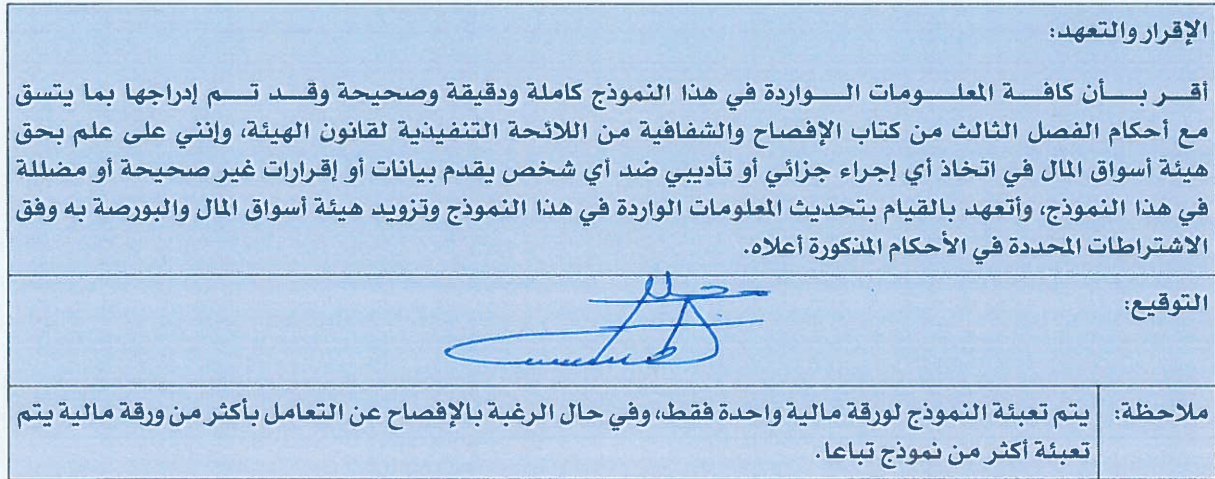 الإقرار والتعهد:
أقـــر بـــــأن كافـــة المعلــــومات الــــواردة في هذا النموذج كاملة ودقيقة وصحيحة وقــد تــم إدراجها بما يتسق
مع أحكام الفصل الثالث من كتاب الإفصاح والشفافية من اللائحة التنفيذية لقانون الهيئة، وإنني على علم بحق
هيئة أسواق المال في اتخاذ أي إجراء جزائي أو تأديبي ضد أي شخص يقدم بيانات أو إقرارات غير صحيحة أو مضللة
في هذا النموذج، وأتعهد بالقيام بتحديث المعلومات الواردة في هذا النموذج وتزويد هيئة أسواق المال والبورصة به وفق
الاشتراطات المحددة في الأحكام المذكورة أعلاه.
التوقيع:
ملاحظة: يتم تعبئة النموذج لورقة مالية واحدة فقط، وفي حال الرغبة بالإفصاح عن التعامل بأكثر من ورقة مالية يتم
تعبئة أكثر من نموذج تباعا.